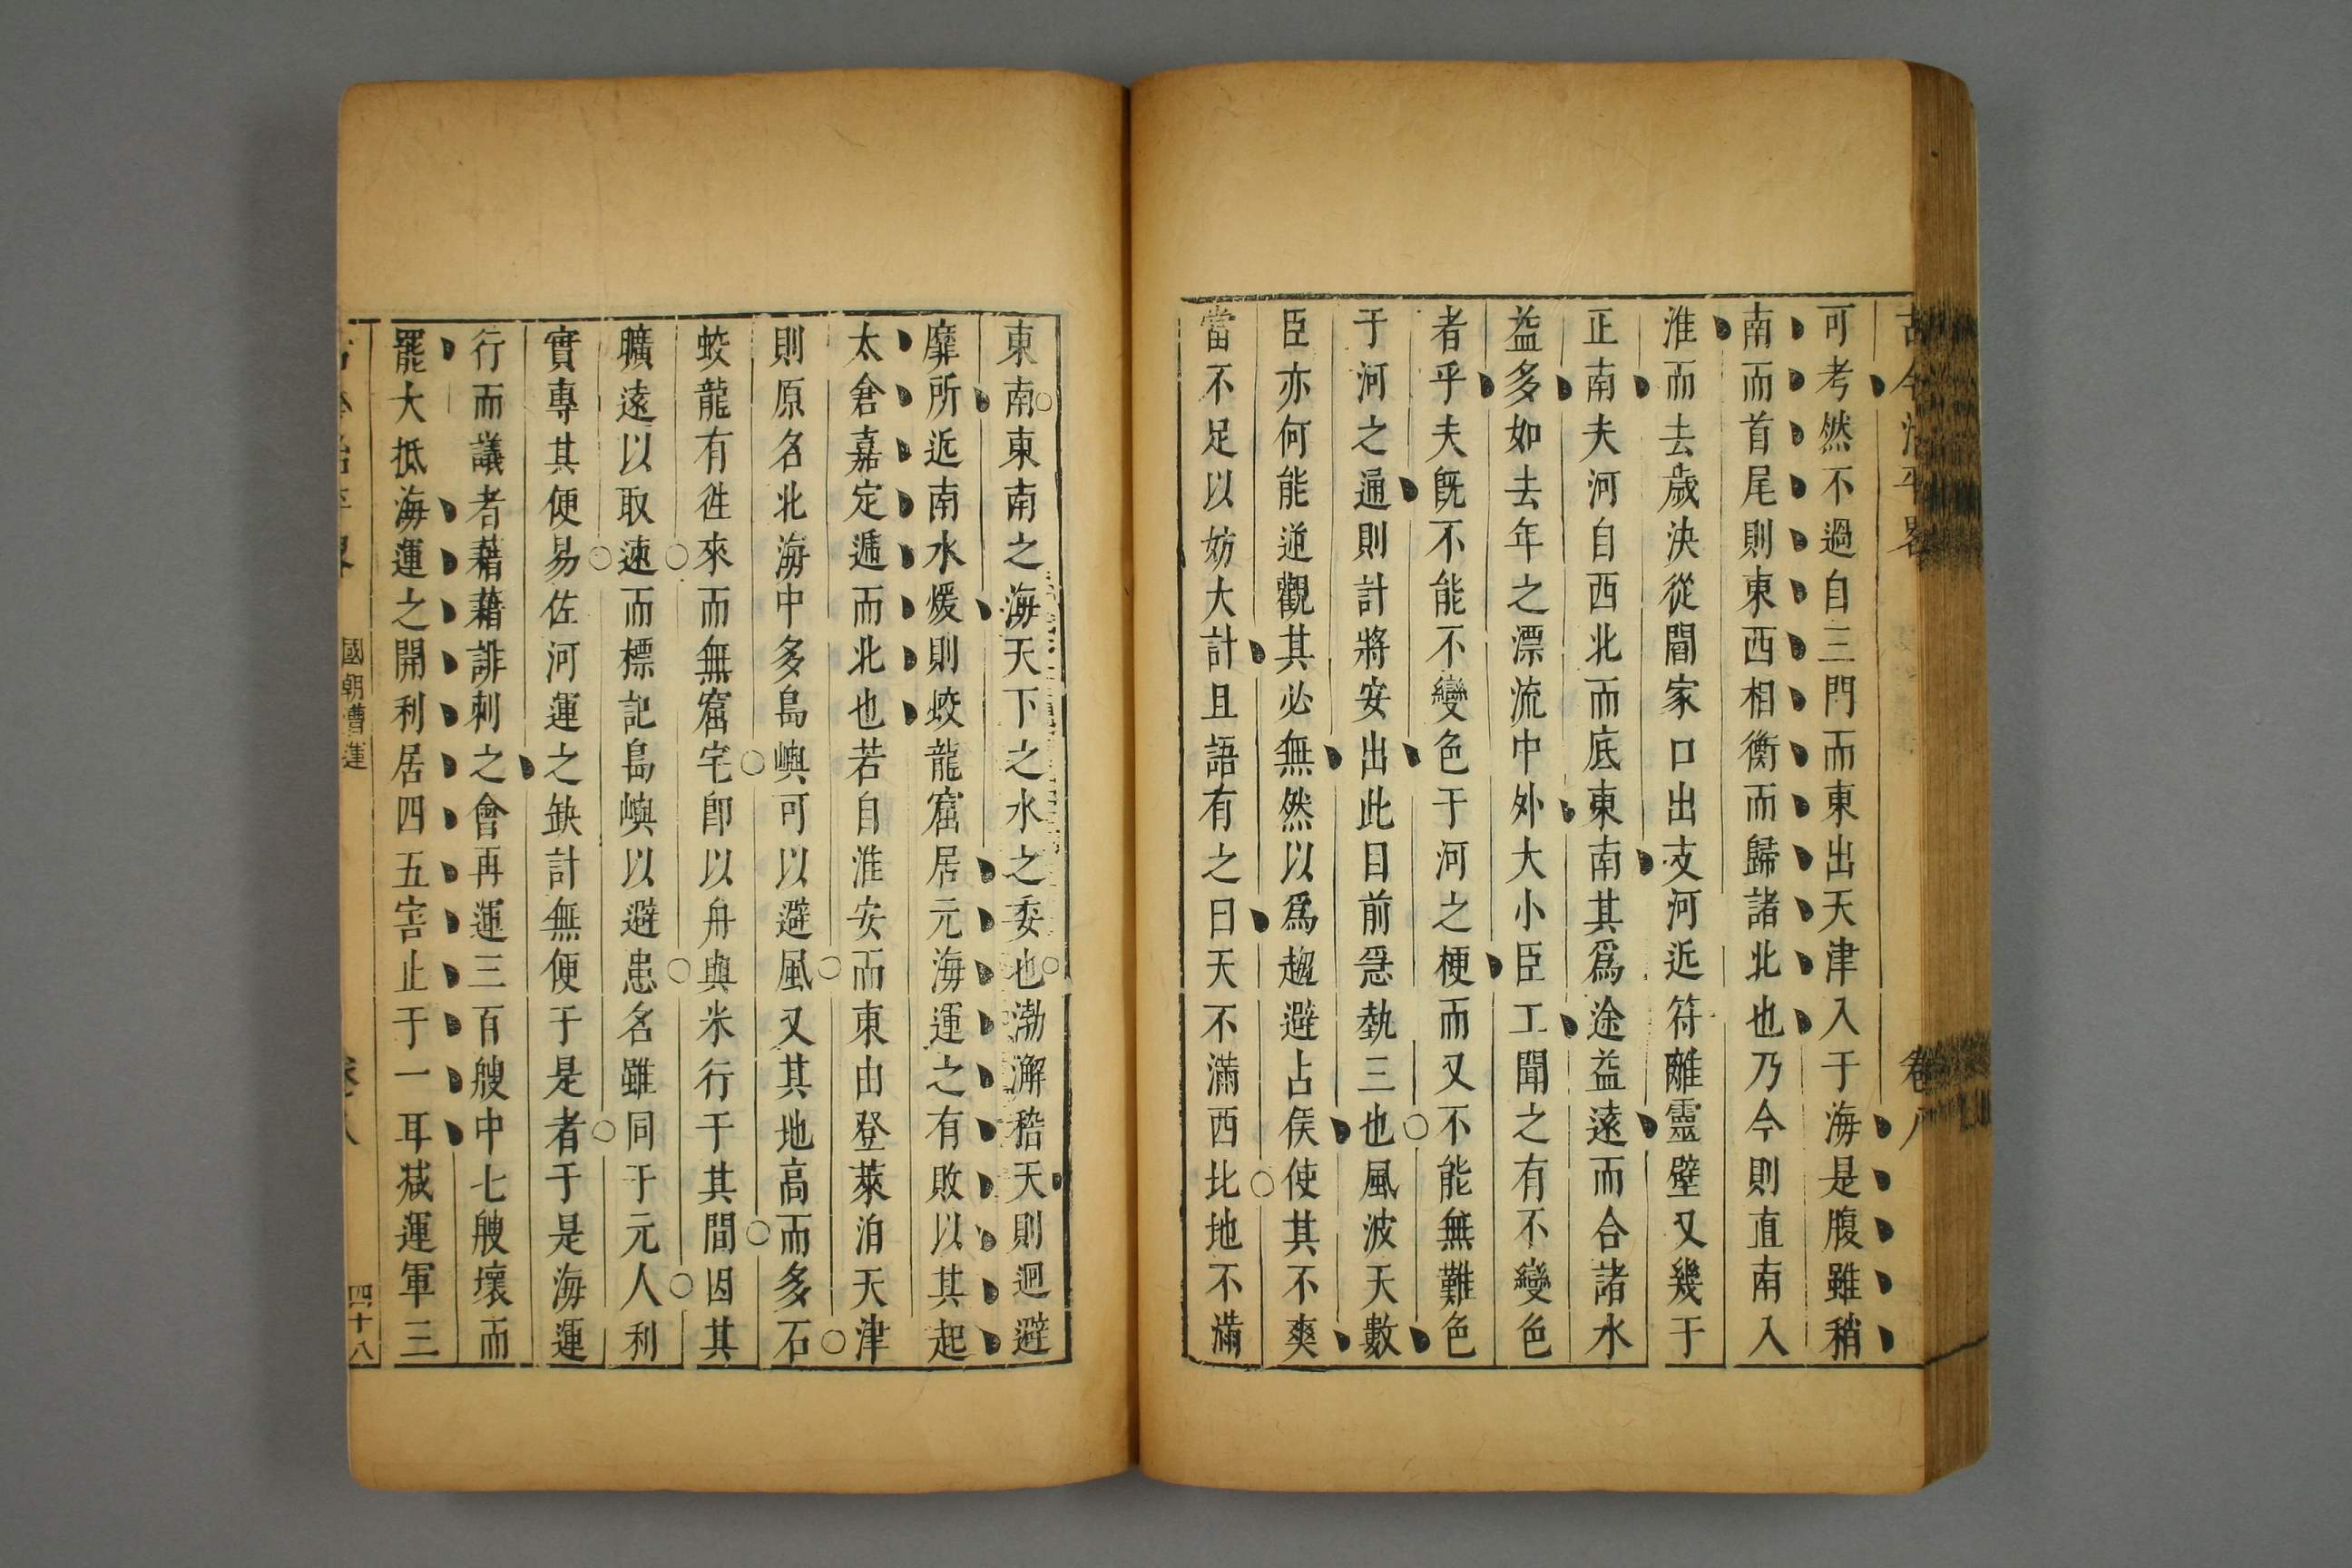 古今治平畧
卷八
可考然不過自三門而東出天津入于海是腹雖稍
南而首尾則東西相衡而歸諸北也乃今則直南入
淮而去歲決從閻家口出支河近符離靈壁又幾于
正南夫河自西北而底東南其爲途益遠而合諸水
益多如去年之漂流中外大小臣工聞之有不變色
者乎夫旣不能不變色于河之梗而又不能無難色
于河之通則計將安出此目前急埶三也風波天數
臣亦何能逆觀其必無然以爲趨避占候使其不爽
當不足以妨大計且語有之曰天不滿西北地不滿
東南東南之海天下之水之委也渤澥稽天則迴避
靡所近南水煖則蛟龍窟居元海運之有敗以其起
太倉嘉定遞而北也若自淮安而東由登萊泊天津
則原名北海中多島嶼可以避風又其地高而多石
蛟龍有徃來而無窟宅卽以舟與米行于其間因其
曠遠以取速而標記島嶼以避患名雖同于元人利
實專其便易佐河運之缺計無便于是者于是海運
行而議者藉藉誹刺之會再運三百艘中七艘壞而
罷大抵海運之開利居四五害止于一耳㓕運軍三
國朝漕運
四十八